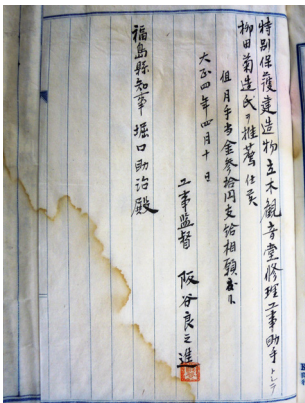 特別保護建造物立木観音堂修理工事助手トシテ
柳田菊造氏ヲ推薦仕候
但月手当金参拾円支給相願度候
大正四年四月十日
工事監督 阪谷良之進
福島縣知事 堀口助治殿